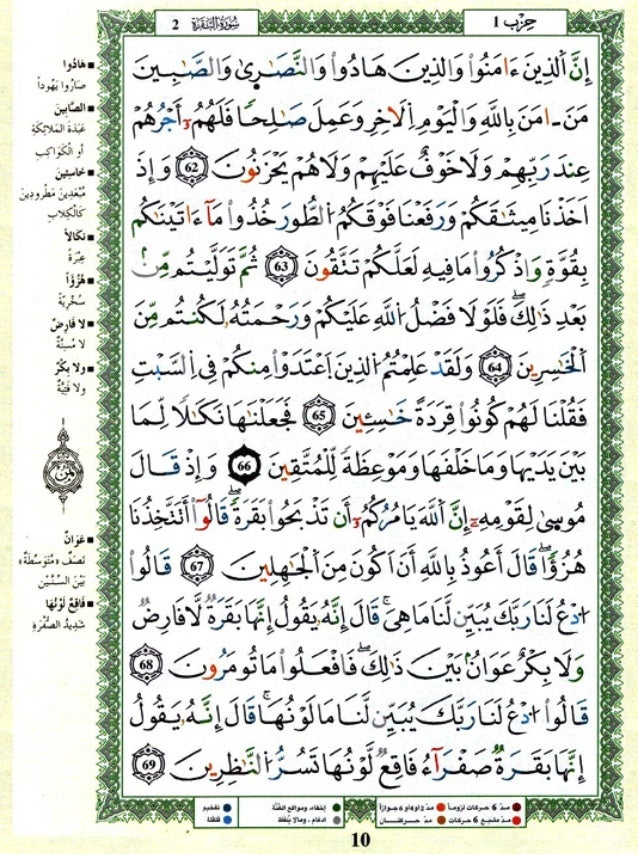 سُورَةُ البَقَرَةِ 2
حِزْب 1
إِنَّ اَ۬لذِينَ ءَامَنُواْ وَالذِينَ هَادُواْ وَالنَّصَٰر۪ىٰ وَالصَّٰبِينَ
مَنَ ـ اٰمَنَ بِاللَّهِ وَالْيَوْمِ اِ۬لَاخِرِ وَعَمِلَ صَٰلِحاٗ فَلَهُمُۥٓ أَجْرُهُمْ
عِندَ رَبِّهِمْ وَلَا خَوْفٌ عَلَيْهِمْ وَلَا هُمْ يَحْزَنُونَ 62 وَإِذَ
اَخَذْنَا مِيثَٰقَكُمْ وَرَفَعْنَا فَوْقَكُمُ اُ۬لطُّورَ خُذُواْ مَآ ءَاتَيْنَٰكُم
بِقُوَّةٖ وَاذْكُرُواْ مَا فِيهِ لَعَلَّكُمْ تَتَّقُونَ 63 ثُمَّ تَوَلَّيْتُم مِّنۢ
بَعْدِ ذَٰلِكَۖ فَلَوْلَا فَضْلُ اُ۬للَّهِ عَلَيْكُمْ وَرَحْمَتُهُۥ لَكُنتُم مِّنَ
اَ۬لْخَٰسِرِينَ 64 وَلَقَدْ عَلِمْتُمُ اُ۬لذِينَ اَ۪عْتَدَوْاْ مِنكُمْ فِي اِ۬لسَّبْتِ
فَقُلْنَا لَهُمْ كُونُواْ قِرَدَةً خَٰسِـِٕينَ 65 فَجَعَلْنَٰهَا نَكَٰلاٗ لِّمَا
بَيْنَ يَدَيْهَا وَمَا خَلْفَهَا وَمَوْعِظَةٗ لِّلْمُتَّقِينَ 66 وَإِذْ قَالَ
مُوس۪ىٰ لِقَوْمِهِۦٓ إِنَّ اَ۬للَّهَ يَامُرُكُمُۥٓ أَن تَذْبَحُواْ بَقَرَةٗۖ قَالُوٓاْ أَتَتَّخِذُنَا
هُزُؤاٗۖ قَالَ أَعُوذُ بِاللَّهِ أَنَ اَكُونَ مِنَ اَ۬لْجَٰهِلِينَ 67 قَالُواْ
اُ۟دْعُ لَنَا رَبَّكَ يُبَيِّن لَّنَا مَا هِيَۖ قَالَ إِنَّهُۥ يَقُولُ إِنَّهَا بَقَرَةٞ لَّا فَارِضٞ
وَلَا بِكْرٌ عَوَانُۢ بَيْنَ ذَٰلِكَۖ فَافْعَلُواْ مَا تُومَرُونَ 68
قَالُواْ اُ۟دْعُ لَنَا رَبَّكَ يُبَيِّن لَّنَا مَا لَوْنُهَاۖ قَالَ إِنَّهُۥ يَقُولُ
إِنَّهَا بَقَرَةٞ صَفْرَآءُ فَاقِعٞ لَّوْنُهَا تَسُرُّ اُ۬لنَّٰظِرِينَ 69
هَادُوا
صَارُوا يَهُوداً
الصَّابِينَ
عَبَدَةَ المَلائِكَةِ
أو الْكَوَاكِبِ
خاسِئِينَ
مُبْعَدِينَ مَطْرُودِينَ
كَالْكِلابِ
نَكالاً
عِبْرَةً
هُزُؤاً
سُخْرِيَّةً
لا فَارِضٌ
لا مُسِنَّةٌ
ولا بِكْرٌ
ولا فَتِيَّةٌ
ثُمُن
عَوَانٌ
نَصَفٌ «مُتَوَسِّطَةٌ»
بَيْنَ السِّنَّيْنِ
فَاقِعٌ لَوْنُهَا
شَدِيدُ الصُّفْرَةِ
مدّ 6 حركات لزوماً
مدّ 2 أو 4 أو 6 جوازاً
إخفاء، ومواقع الغُنَّة
تفخيم
مدّ مشبع 6 حركات
مدّ حركتان
ادغام، ومالا يُلفظ
قلقلة
10